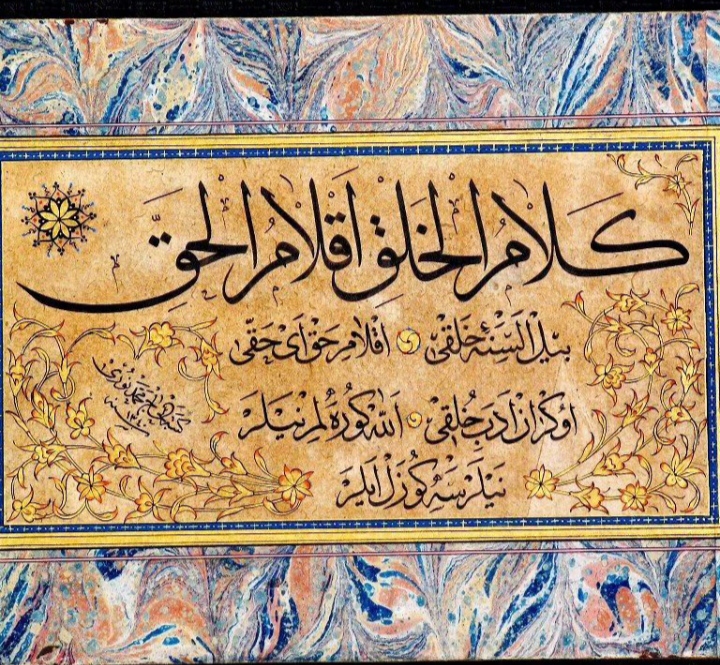 كَلَامُ الْخَلْقِ اَقْلَامُ الْحَقِّ
بيل السنهٔ خلقى اقلام حق اى حقى
اوكرن ادب خلقى الله كوره لم نيلر
نيلرسه كوزل ايلر